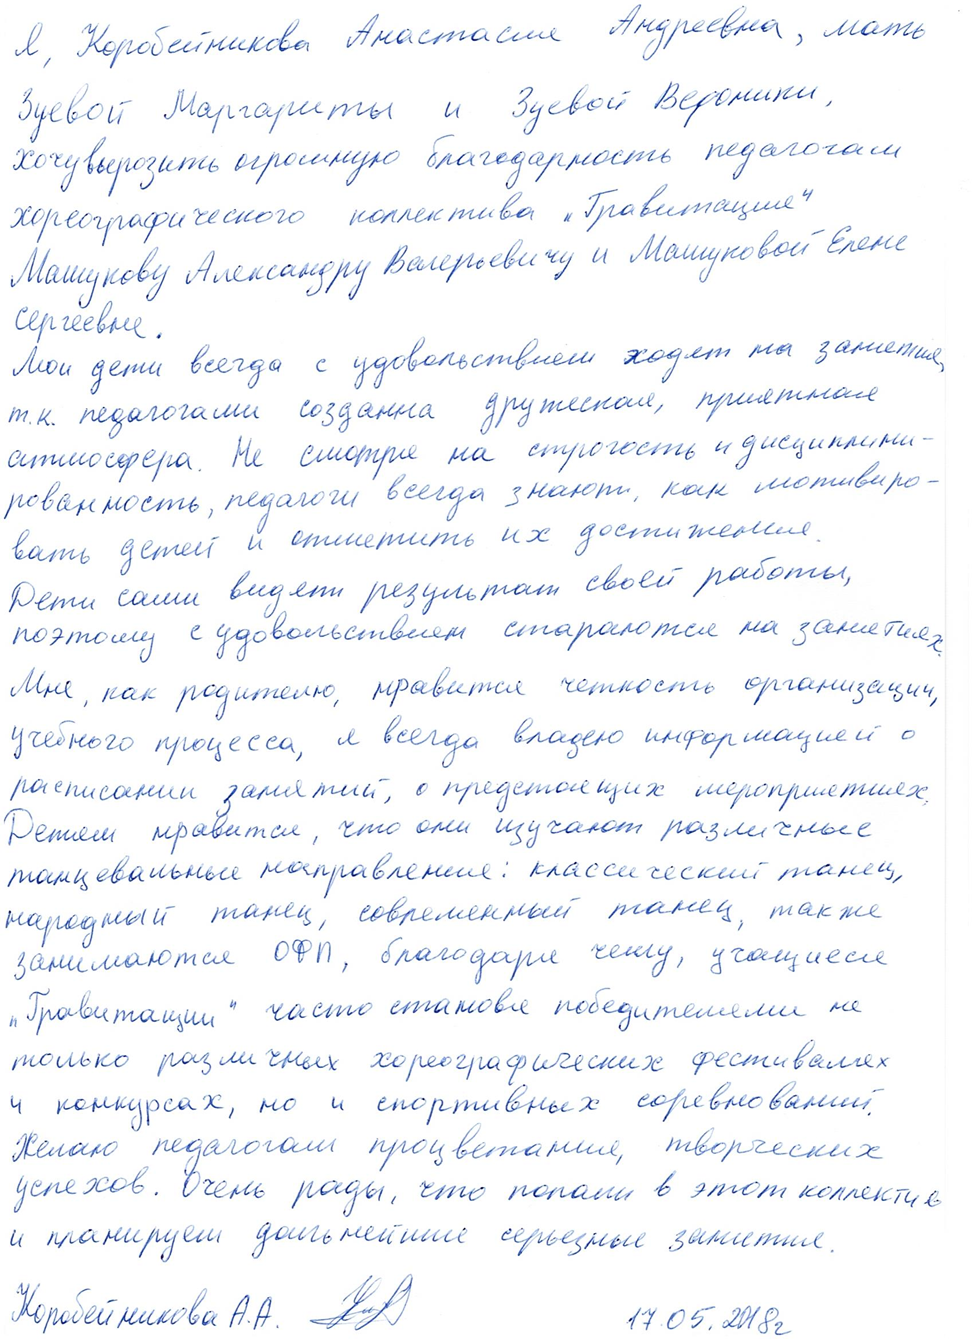 Я, Коробейникова Анастасия Андреевна, мать
Зуевой Маргариты и Зуевой Вероники,
хочу вырозить огромную благодарность педагогам
хореографического коллектива „Гравитация“
Машукову Александру Валерьевичу и Машуковой Елене
Сергеевне.
Мои дети всегда с удовольствием ходят на занятия,
т.к. педагогами созданна дружеская, приятная
атмосфера. Не смотря на строгость и дисциплини-
рованность, педагоги всегда знают, как мотивиро-
вать детей и отметить их достижения.
Дети сами видят результат своей работы,
поэтому с удовольствием стараются на занятиях.
Мне, как родителю, нравится четкость организации,
учебного процесса, я всегда владею информацией о
расписании занятий, о предстоящих мероприятиях.
Детям нравится, что они изучают различные
танцевальные направления: классический танец,
народный танец, современный танец, также
занимаются ОФП, благодаря чему, учащиеся
„Гравитации“ часто становя победителями не
только различных хореографических фестивалях
и конкурсах, но и спортивных соревнований.
Желаю педагогам процветания, творческих
успехов. Очень рады, что попали в этот коллектив
и планируем дальнейшие серьезные занятия.
Коробейникова А.А.
17.05.2018г